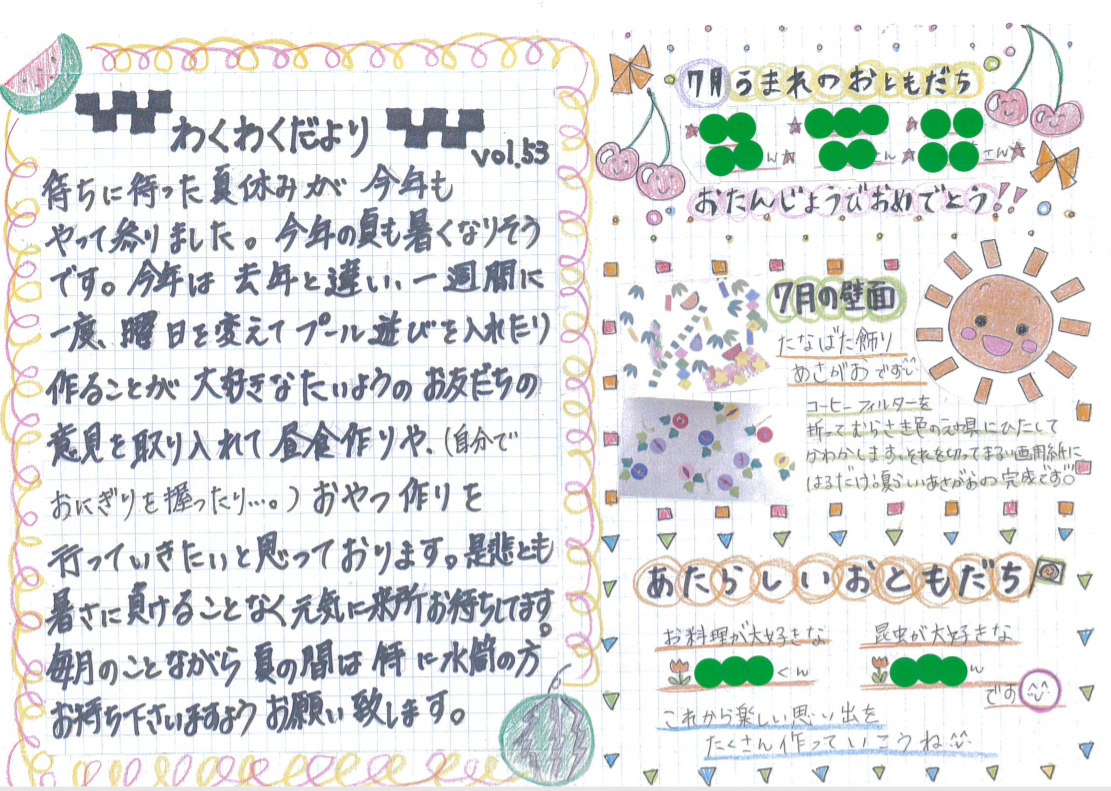 わくわくだより
vol.53
待ちに待った夏休みが 今年も
やって参りました。今年の夏も暑くなりそう
です。今年は 去年と違い、一週間に
一度、曜日を変えて プール遊びを入れたり
作ることが 大好きなたいようの お友だちの
意見を取り入れて 昼食作りや、(自分で
おにぎりを握ったり…。) おやつ作りを
行っていきたいと思っております。是悲とも
暑さに負けることなく元気に来所お待ちしてます。
毎月のことながら 夏の間は 特に水筒の方
お持ち下さいますよう お願い致します。
7月うまれのおともだち
ん さん さん
おたんじょうびおめでとう!!
7月の壁面
たなばた飾り
あさがおです
コーヒーフィルターを
折ってむらさき色の絵具にひたして
かわかします。それを切ってまるい画用紙に
はるだけ。夏らしいあさがおの 完成です
あたらしいおともだち
お料理が大好きな
くん
昆虫が大好きな
ん
です
これから楽しい思い出を
たくさん作っていこうね